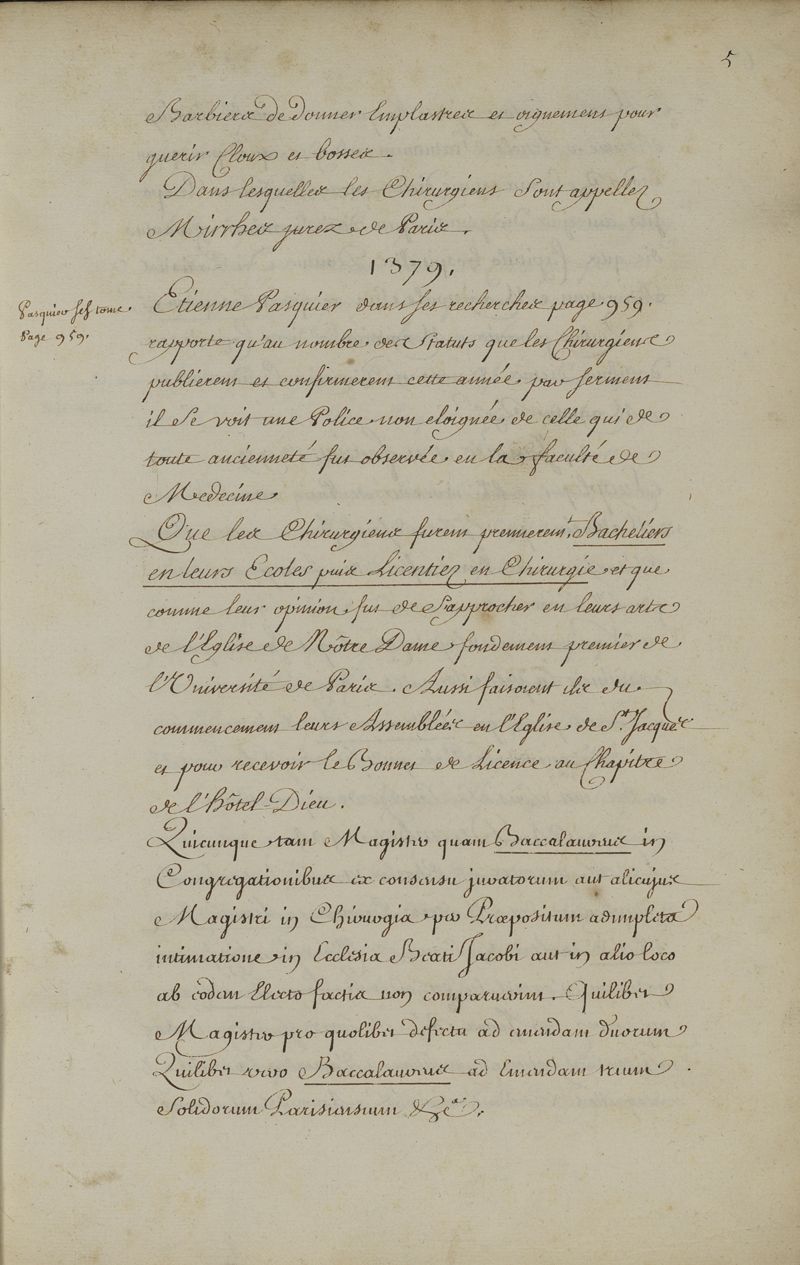 5
Barbiers de donner Emplastres et oignemens pour
guerir Cloux et bosses.
Dans lesquelles les Chirurgiens Sont appellez
Mirrhes jurez de Paris.
1379.
Pasquier ses tome.
Page 959.
Etienne Pasquier dans ses recherches page 959.
rapporte qu'au nombre des Statuts que les Chirurgiens
publierent et confirmerent cette année par serment
il Se voit une Police non eloignée de celle qui de
toute ancienneté fut observée en la faculté de
Medecine
Que les Chirurgiens furent premierent. Bacheliers
en leurs Ecoles puis Licentiez en Chirurgie et que
comme leur opinion fut de S'approcher en leurs arts
de l'Eglise de Nôtre Dame fondement premier de
l'Université de Paris. Aussi faisoient ils du
commencement leurs Assemblées en l'Eglise de St. Jacques
et pour recevoir le Bonnet de Licence au Chapitre
de l'hôtel-Dieu.
Quicunque tam Magister quam Baccalaureus in
Congregationibus ex consensu juratorum aut alicujus
Magistri in Chirurgia per Præpositum adimpleta
intimatione in Ecclesia Beati Jacobi aut in alio loco
ab eodem Electo factis non comparuerint. Quilibet
Magister pro quolibet defectu ad emendam duorum
Quilibet vero Baccalaureus ad Emendam trium
Solidorum Parisiensium &ca.